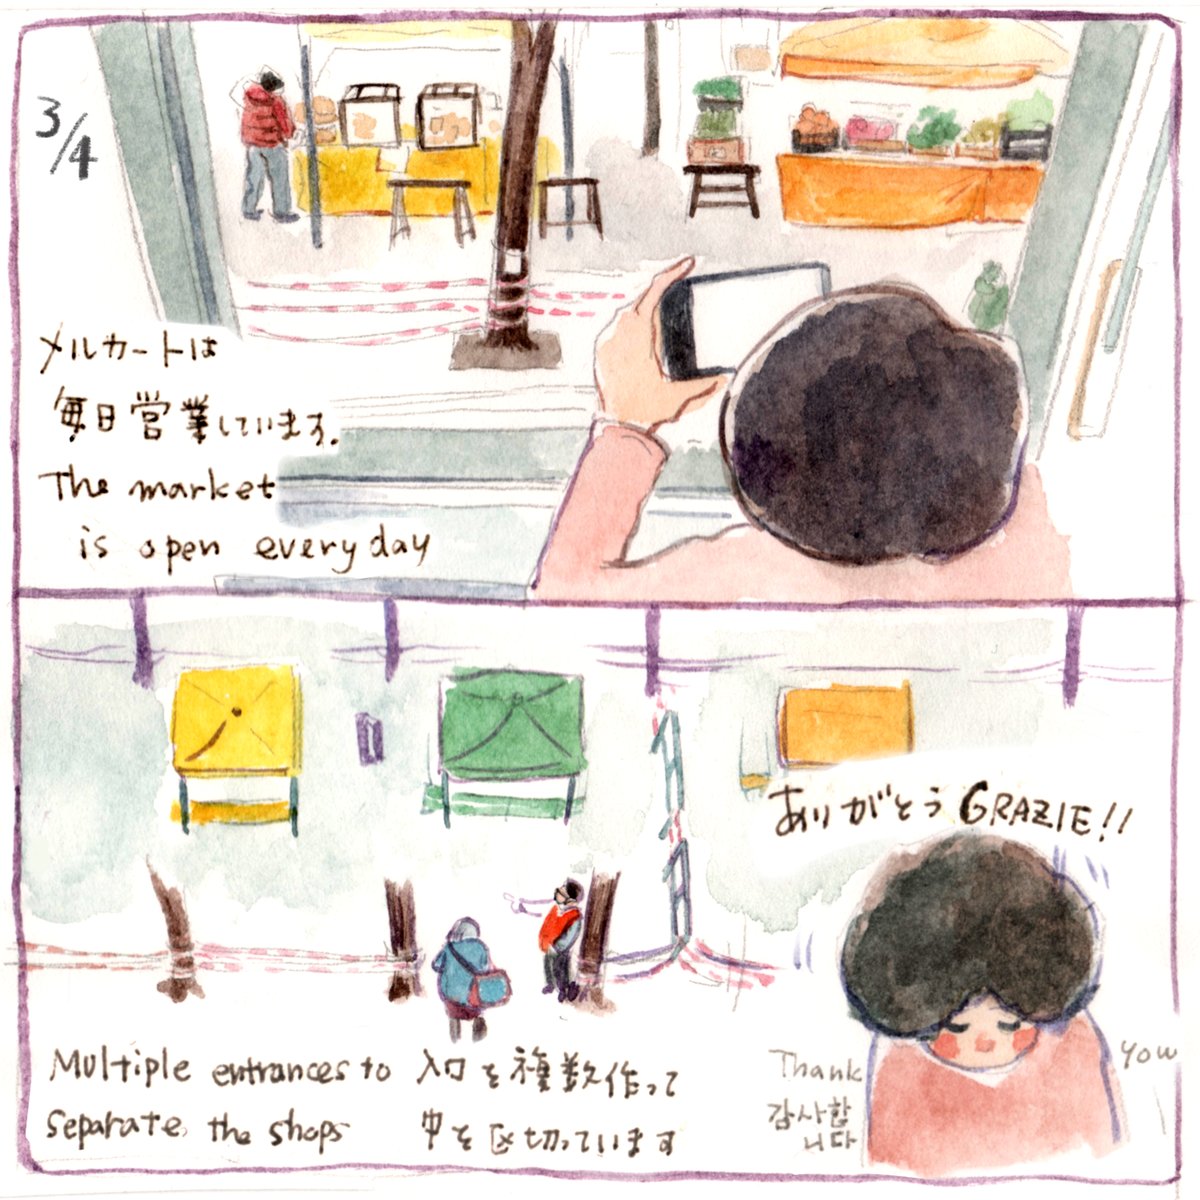 3/4
メルカートは
毎日営業しています.
The market
is open everyday
ありがとう GRAZIE!!
Multiple entrances to
separate the shops
入口を複数作って
中を区切っています
Thank You
감사합
니다